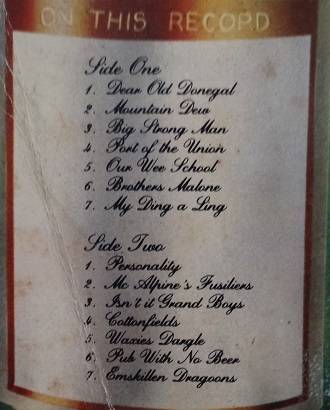 ON THIS RECORD
Side One
1. Dear Old Donegal
2. Mountain Dew
3. Big Strong Man
4. Port of the Union
5. Our Wee School
6. Brothers Malone
7. My Ding a Ling
Side Two
1. Personality
2. Mc Alpine's Fusiliers
3. Isn't it Grand Boys
4. Cottonfields
5. Waxies Dargle
6. Pub With No Beer
7. Emskillen Dragoons